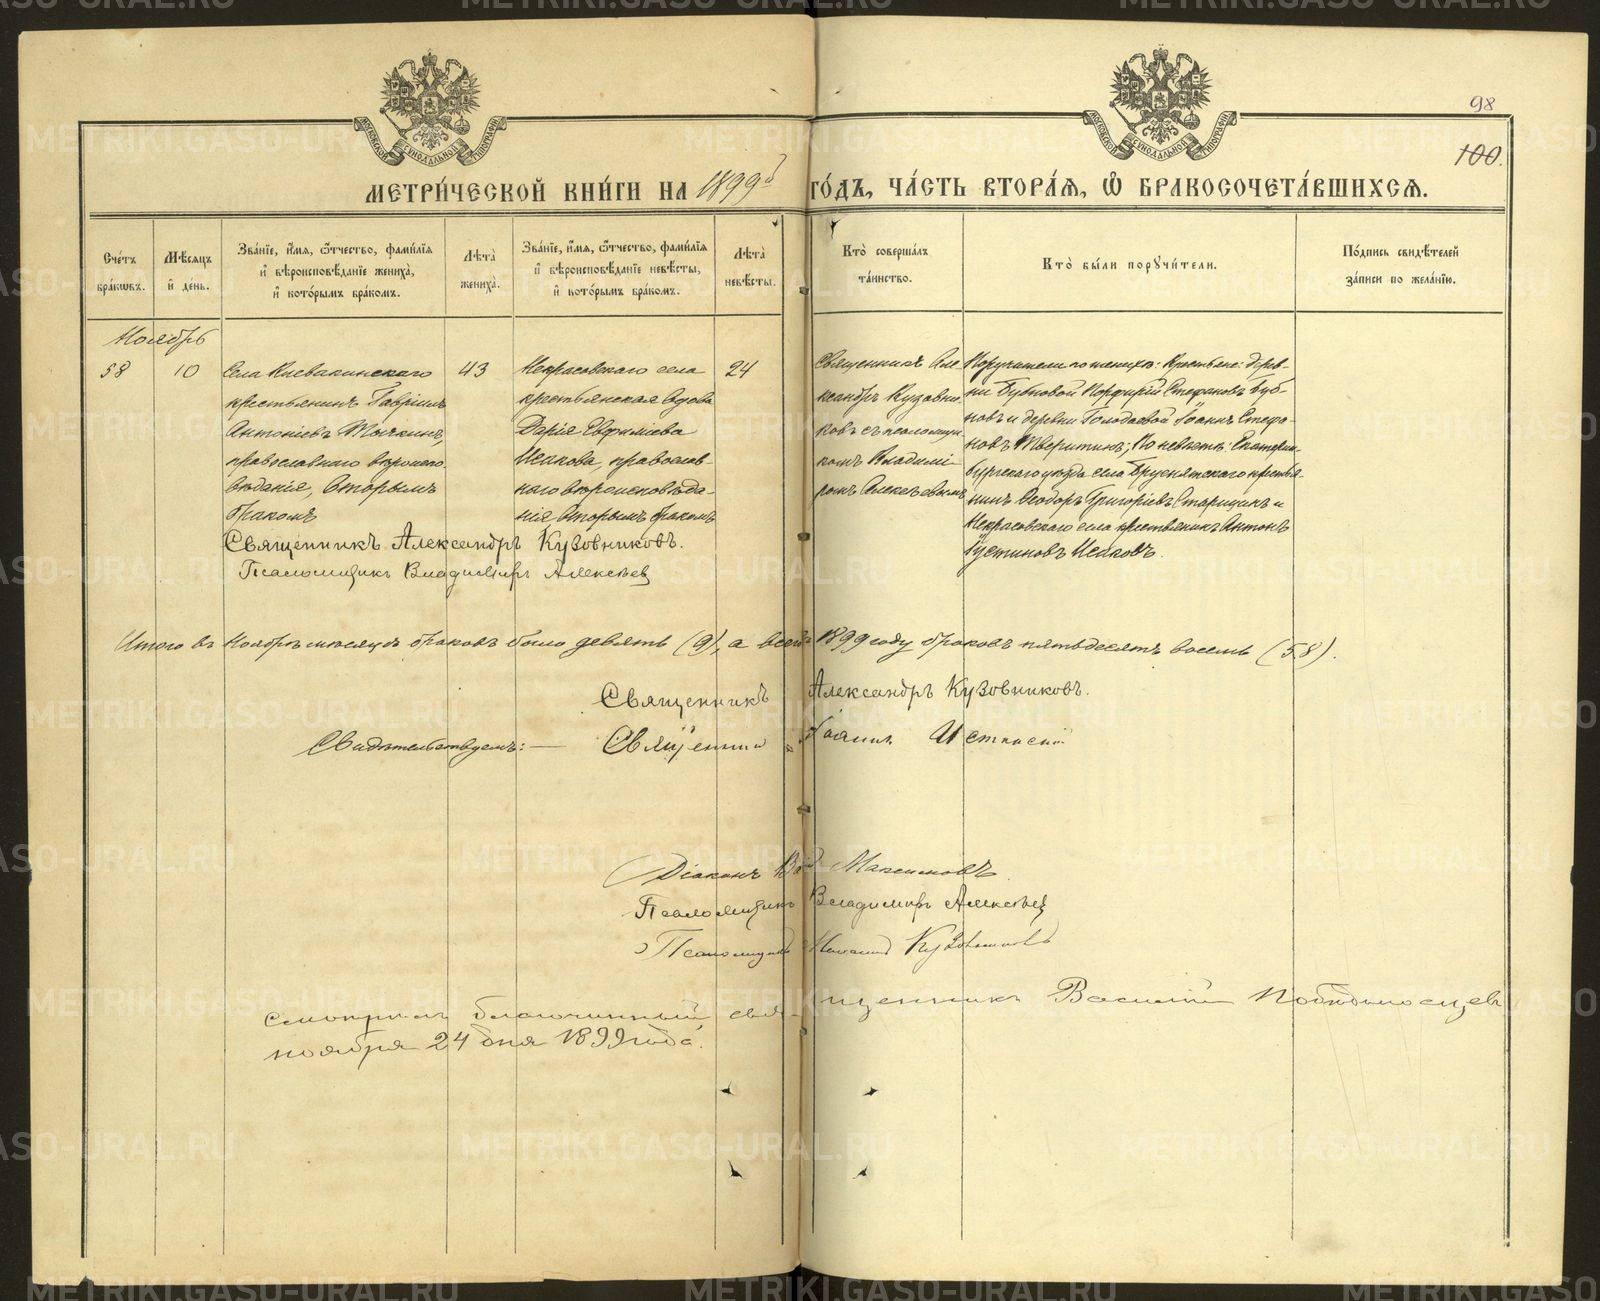 98
100.
МОСКОВСКОЙ СѴНОДАЛЬНОЙ ТИПОГРАФІИ
МОСКОВСКОЙ СѴНОДАЛЬНОЙ ТИПОГРАФІИ
МЕТРИ́ЧЕСКОЙ КНИ́ГИ НА 1899й ГО́ДЪ, ЧА́СТЬ ВТОРА́Я, Ѡ҆ БРАКОСОЧЕТА́ВШИХСЯ.
Сче́тъ бра́кѡвъ.
Мѣ́сяцъ и҆ де́нь.
Зва́нїе, и҆́мя, ѻ҆́тчество, фами́лїя и҆ вѣроисповѣ́данїе жениха̀, и҆ кото́рымъ бра́комъ.
Лѣта̀ жениха̀.
Зва́нїе, и҆́мя, ѻ҆́тчество, фами́лїя и҆ вѣроисповѣ́данїе невѣ́сты, и҆ кото́рымъ бра́комъ.
Лѣта̀ невѣ́сты.
Кто̀ соверша́лъ та́инство.
Кто̀ бы́ли порꙋчи́тели.
По́дпись свидѣ́телей за́писи по жела́нїю.
Ноябрь
58
10
Села Клевакинскаго
крестьянинъ Гавріилъ
Антоніевъ Тычкинъ,
православнаго вѣроиспо-
вѣданія, вторымъ
бракомъ
43
Некрасовскаго села
крестьянская вдова
Дарія Евѳиміева
Исакова, православ-
наго вѣроисповѣда-
нія вторымъ бракомъ
24
Священникъ Але
ксандръ Кузовни-
ковъ съ псаломщи-
комъ Владимі-
ромъ Алексѣевымъ
Поручители по женихѣ: Крестьяне: дерев-
ни Бубновой Порфирій Стефановъ Буб-
новъ и деревни Голодаевой Іоаннъ Стефа-
новъ Тверитинъ; По невѣстѣ: Екатерин-
бургскаго уѣзда села Бруснятскаго крестья-
нинъ Ѳеодоръ Григоріевъ Старицинъ и
Некрасовскаго села крестьянинъ Антонъ
Іустиновъ Исаковъ.
Священникъ Александръ Кузовниковъ.
Псаломщикъ Владимиръ Алексѣевъ
Итого въ Ноябрѣ мѣсяцѣ браковъ было девять (9), а всего 1899 году браковъ пятьдесятъ восемь (58).
Священникъ Александръ Кузовниковъ.
Свидѣтельствуемъ: — Священникъ Іоаннъ
Діаконъ Максимовъ
Псаломщикъ Владимиръ Алексѣевъ
Псаломщикъ Кузовниковъ
Смотрѣлъ благочинный священникъ Василій Побѣдоносцевъ
ноября 24 дня 1899 года.